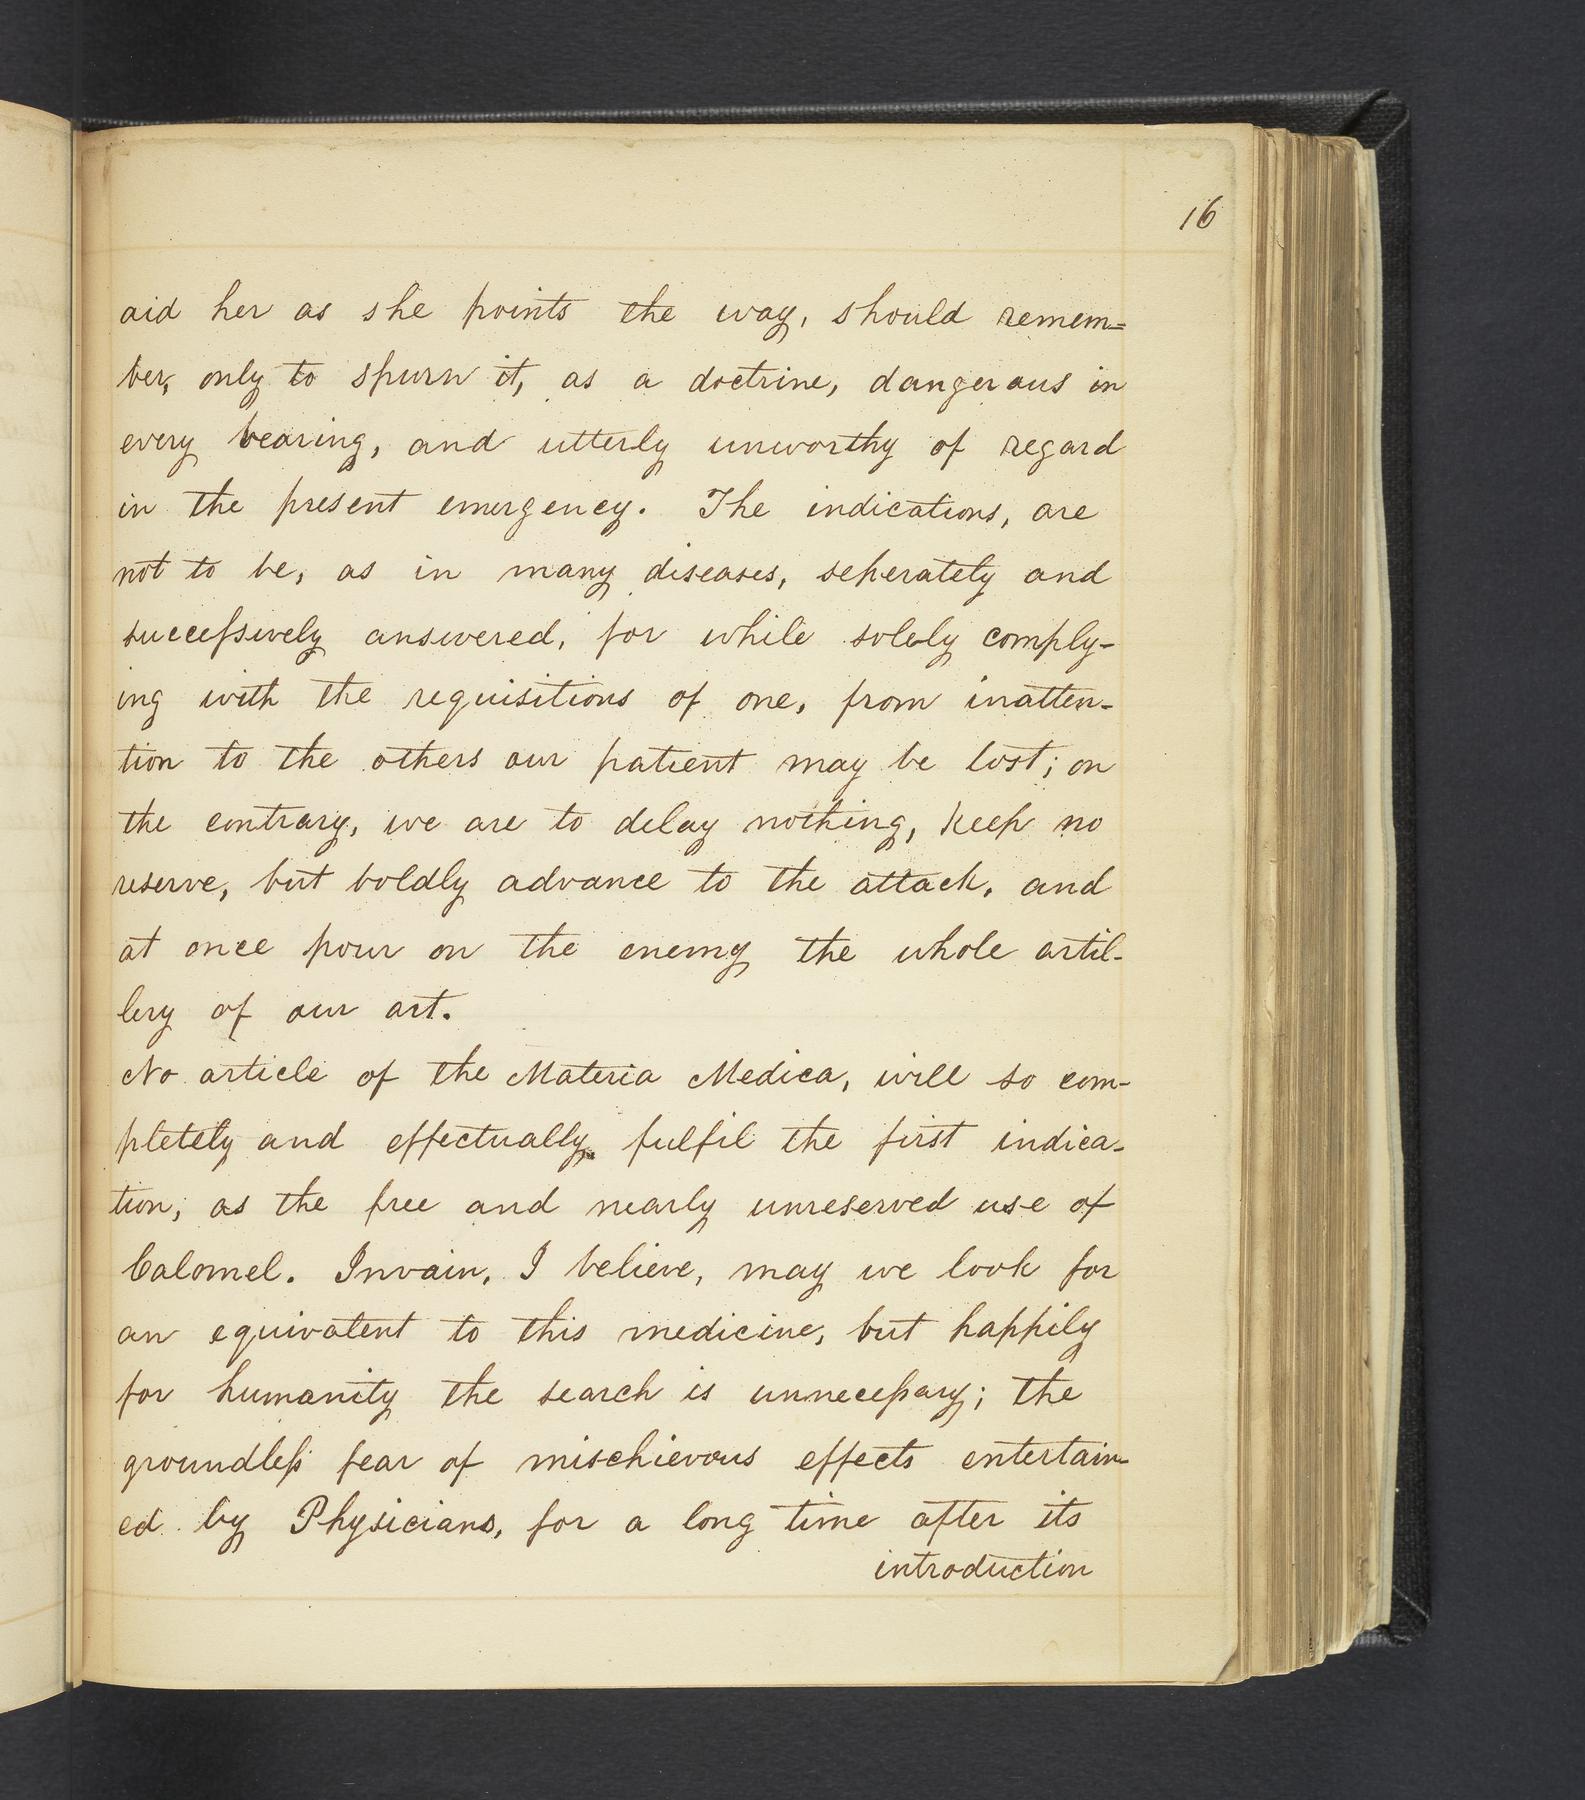 16
aid her as she points the way, should remem=
ber, only to spurn it, as a doctrine, dangerous in
every bearing, and utterly unworthy of regard
in the present emergency. The indications, are
not to be, as in many diseases, seperately and
succeſsively answered, for while solely comply-
ing with the requisitions of one, from inatten-
tion to the others our patient may be lost; on
the contrary, we are to delay nothing, keep no
reserve, but boldly advance to the attack, and
at once pour on the enemy the whole artil-
lery of our art.
No article of the Materia Medica, will so com-
pletely and effectually, fulfil the first indica-
tion, as the free and nearly unreserved use of
Calomel. Invain, I believe, may we look for
an equivalent to this medicine, but happily
for humanity the search is unneceſsary; the
groundleſs fear of mischievous effects entertain-
ed by Physicians, for a long time after its
introduction